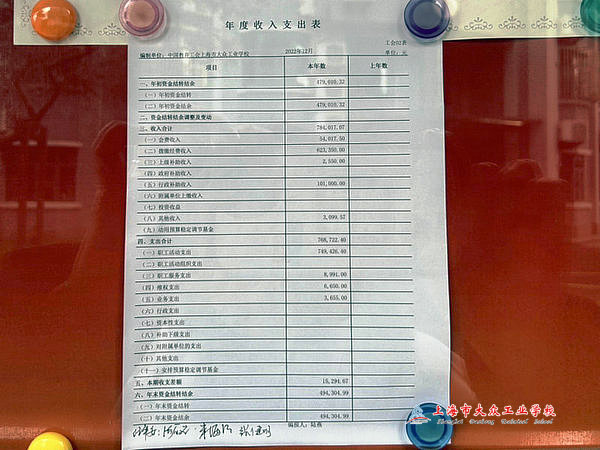 年度收入支出表
工会02表
编制单位：中国教育工会上海市大众工业学校 2022年12月 单位：元
项目 本年数 上年数
一、年初资金结转结余 479,010.32
（一）年初资金结转
（二）年初资金结余 479,010.32
二、资金结转结余调整及变动
三、收入合计 784,017.07
（一）会费收入 54,017.50
（二）拨缴经费收入 623,350.00
（三）上级补助收入 2,550.00
（四）政府补助收入
（五）行政补助收入 101,000.00
（六）附属单位上缴收入
（七）投资收益
（八）其他收入 3,099.57
（九）动用预算稳定调节基金
四、支出合计 768,722.40
（一）职工活动支出 749,426.40
（二）职工活动组织支出
（三）职工服务支出 8,991.00
（四）维权支出 6,650.00
（五）业务支出 3,655.00
（六）行政支出
（七）资本性支出
（八）补助下级支出
（九）对附属单位的支出
（十）其他支出
（十一）安排预算稳定调节基金
五、本期收支差额 15,294.67
六、年末资金结转结余 494,304.99
（一）年末资金结转
（二）年末资金结余 494,304.99
编报人：陆燕
上海市大众工业学校